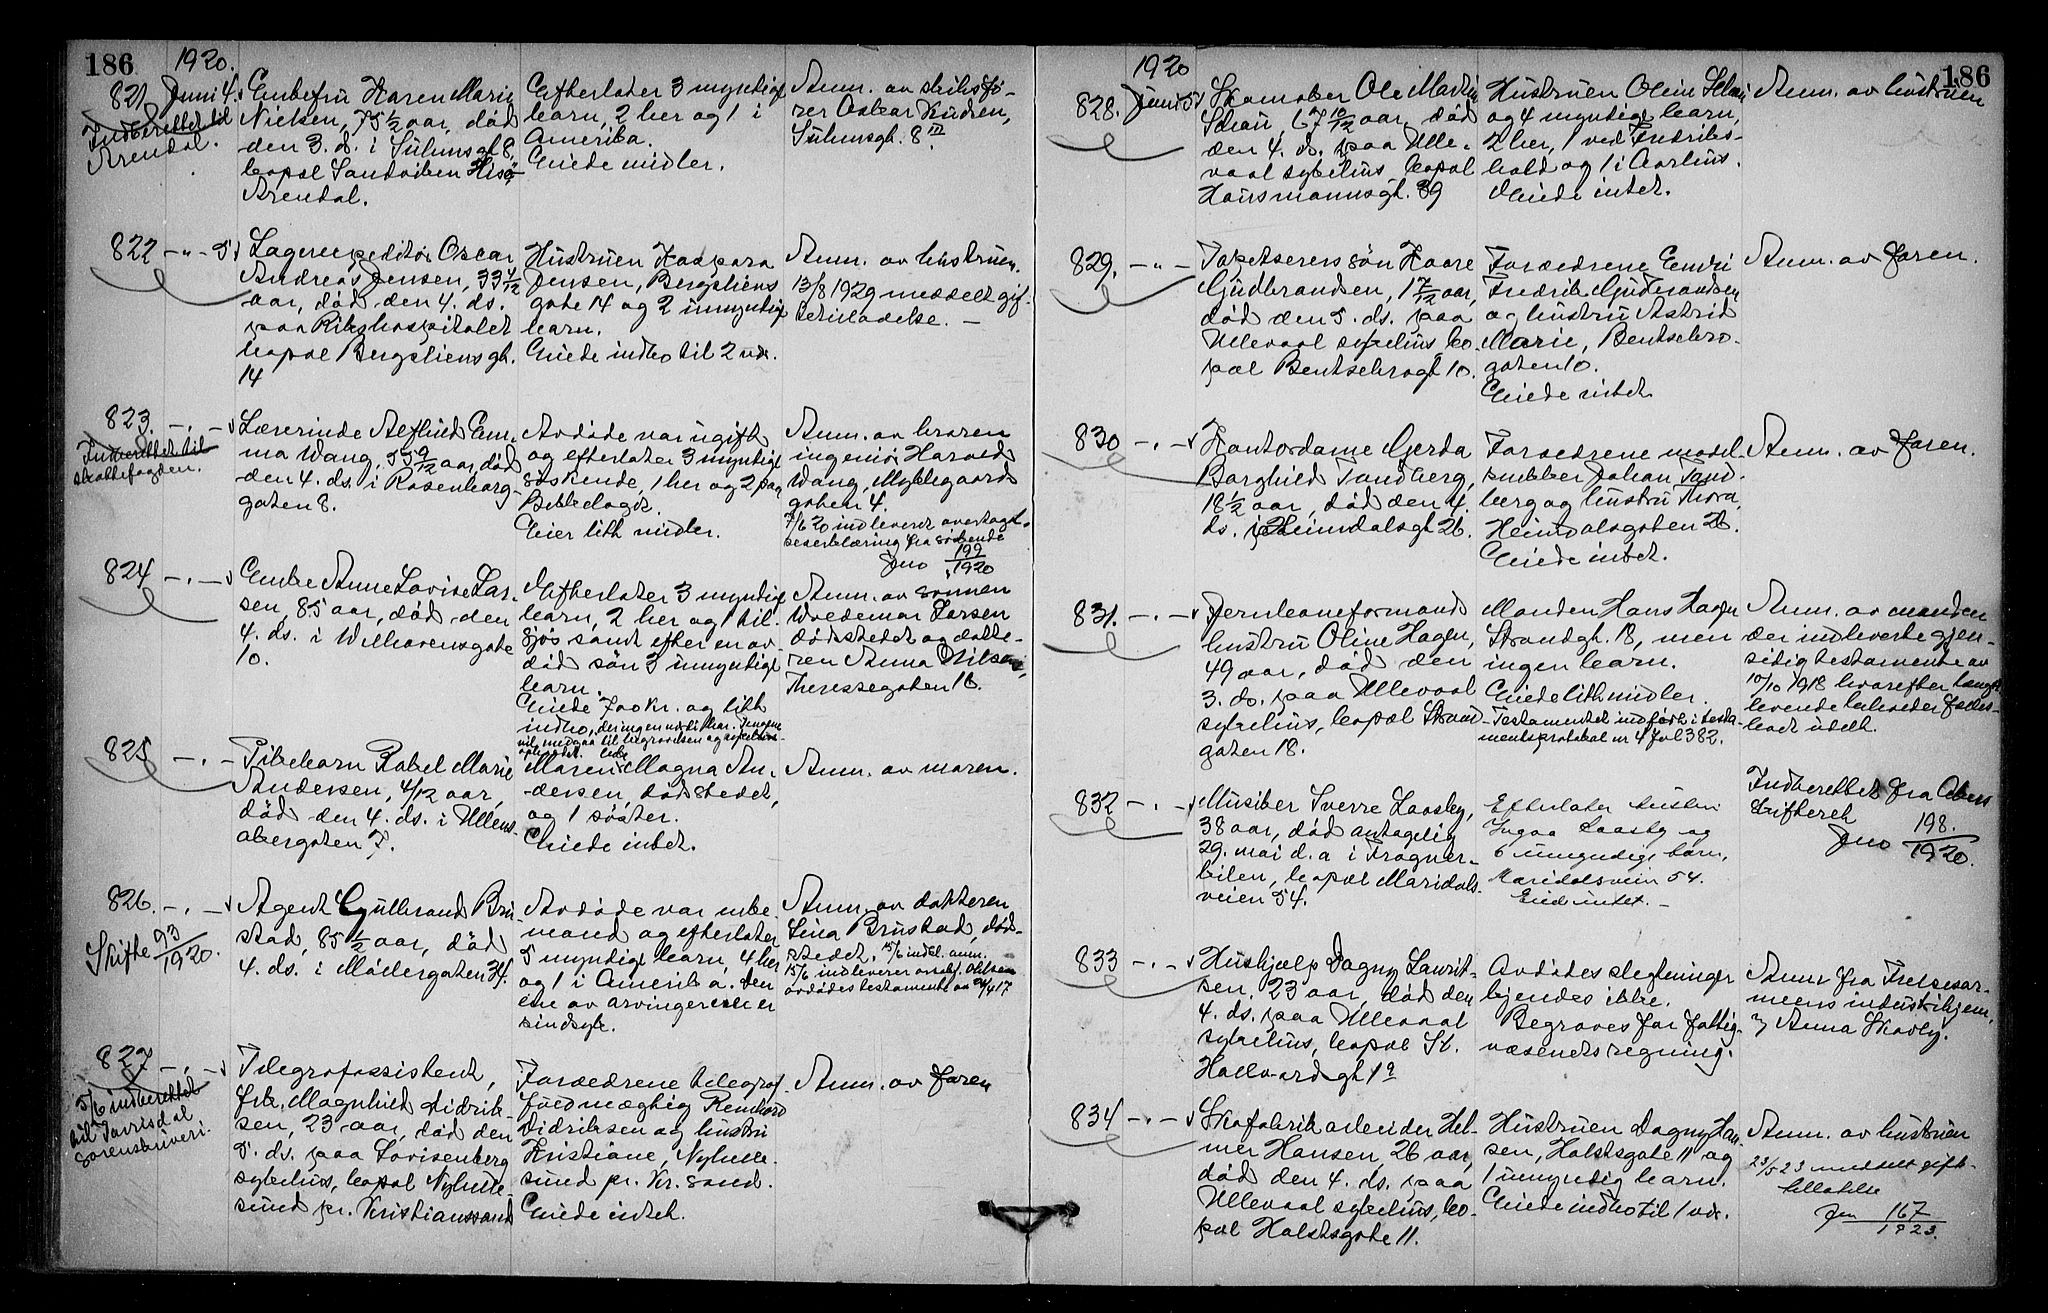 186
1920.
821 Juni 4.
Indberettet til
Arendal.
Enkefru Karen Marie
Nielsen, 75 1/2 aar, død
den 3. d. i Suhmsgt 8,
bopæl Sandviken Hisø,
Arendal.
Efterlater 3 myndige
barn, 2 her og 1 i
Amerika.
Eiede midler.
Anm. av skibsfø-
rer Oskar Knudsen,
Suhmsgt. 8 III
822 -"- 5
Lagerexpeditør Oscar
Andreas Jensen, 33 4/12
aar, død den 4. ds.
paa Rikshospitalet
bopæl Bergsliensgt.
14
Hustruen Kaspara
Jensen, Bergsliens
gate 14 og 2 umyndige
barn.
Eiede indbo til 2 vær.
Anm. av hustruen.
13/8 1929 meddelt gif-
tetilladelse. -
823. -"-
Indberettet til
skattefogden.
Lærerinde Alfhild Em-
ma Wang, 55 9/12 aar, død
den 4. ds. i Rosenborg-
gaten 8.
Avdøde var ugift
og efterlater 3 myndige
søskende, 1 her og 2 paa
Bækkelaget.
Eier litt midler.
Anm. av broren
ingeniør Harald
Wang, Møllegaards
gaten 4.
7/6 20 indleveret overtagel-
seserklæring fra søskende
Jno 199/1920
824 -"-
Enke Anne Lovise Lar-
sen, 85 aar, død den
4. ds. i Wilhavensgate
10.
Efterlater 3 myndige
barn, 2 her og 1 til-
sjøs samt efter en av-
død søn 3 umyndige
barn.
Eiede 700 kr. og litt
indbo, der ingen verdi har. Pengene
vil medgaa til begravelsen og sykehus-
opholdet.
Anm. av sønnen
Woldemar Larsen
dødsstedet og datte-
ren Anna Nilsen,
Theresesgaten 16.
825 -"-
Pikebarn Rakel Marie
Andersen, 4/12 aar,
død den 4. ds. i Ullens-
akergaten 7.
Moren Magna An-
dersen, dødsstedet,
og 1 søster.
Eiede intet.
Anm. av moren.
826. -"-
Skifte 93/1920.
Agent Gulbrand Bru-
stad, 85 1/2 aar, død
4. ds. i Mødergaten 34.
Avdøde var enke-
mand og efterlater
5 myndige barn, 4 her
og 1 i Amerika. Den
ene av arvingerne er
sindsyk.
Anm. av datteren
Lina Brustad, død-
stedet, 15/6 indl. anm.
15/6 indleverer overf. Ohlsen
avdødes testamente av 24/4 17
827 -"-
5/6 indberettet
til Torrisdal
sorenskriveri.
Telegrafassistent,
frk. Magnhild Didrik-
sen, 23 aar, død den
5. ds. paa Lovisenberg
sykehus, bopæl Nyhelle-
sund pr. Kristianssand
Forældrene telegraf-
fuldmægtig Reinhard
Didriksen og hustru
Kristiane, Nyhelle-
sund pr. Kr.sand.
Eiede intet.
Anm. av faren
186
1920
828. Juni 5
Skomaker Ole Martin
Schau, 67 10/12 aar, død
den 4. ds. paa Ulle-
vaal sykehus, bopæl
Hausmannsgt. 39
Hustruen Oline Schau
og 4 myndige barn,
2 her, 1 ved Fredriks-
hald og 1 i Aarhus.
Eiede intet.
Anm. av hustruen
829. -"-
Tapetserers søn Kaare
Gudbrandsen, 1 7/12 aar,
død den 5. ds. paa
Ullevaal sykehus bo-
pæl Bentsebrogt 10.
Forældrene Endri
Fredrik Gudbrandsen
og hustru Astrid
Marie, Bentsebro-
gaten 10.
Eiede intet
Anm. av faren.
830 -"-
Kontordame Gerda
Borghild Tandberg,
18 1/2 aar, død den 4.
ds. i Heimdalsgt 26.
Forældrene model-
snekker Johan Tand-
berg og hustru Thora,
Heimdalsgaten 26.
Eiede intet.
Anm. av faren.
831. -"-
Jernbaneformands
hustru Oline Hagen,
49 aar, død den
3. ds. paa Ullevaal
sykehus, bopæl Strand-
gaten 18.
Manden Hans Hagen
Strandgt. 18, men
ingen barn.
Eiede litt midler.
Testamentet indført i testa-
mentsprotokol nr 4 fol 382.
Anm. av manden
der indleverte gjen-
sidig testamente av
10/10 1918 hvorefter længst
levende beholder fælles-
boet udelt.
832 -"-
Musiker Sverre Laasby,
38 aar, død antagelig
29. mai d.a. i Frogner-
kilen, bopæl Maridals-
veien 54.
Efterlater hustru
Yngva Laasby og
6 umyndige barn,
Maridalsveien 54.
Eiede intet. -
Indberettet fra Akers
skifteret
Jno 198./1920.
833 -"-
Hushjælp Dagny Laurit-
sen, 23 aar, død den
4. ds. paa Ullevaal
sykehus, bopæl St.
Hallvardsgt 1 a
Avdødes slegtninger
kjendes ikke.
Begraves for fattig-
væsenets regning.
Anm fra Frelsesar-
meens industrihjem,
v Anna Skovly.
834 -"-
Skofabrikarbeider Hel-
mer Hansen 26 aar,
død den 4. ds. paa
Ullevaal sykehus, bo-
pæl Holstsgate 11.
Hustruen Dagny Han-
sen, Holstsgate 11 og
1 umyndig barn.
Eiede indbo til 1 vær.
Anm. av hustruen
23/5 23 meddelt gifte-
tilladelse
Jno 167/1923.